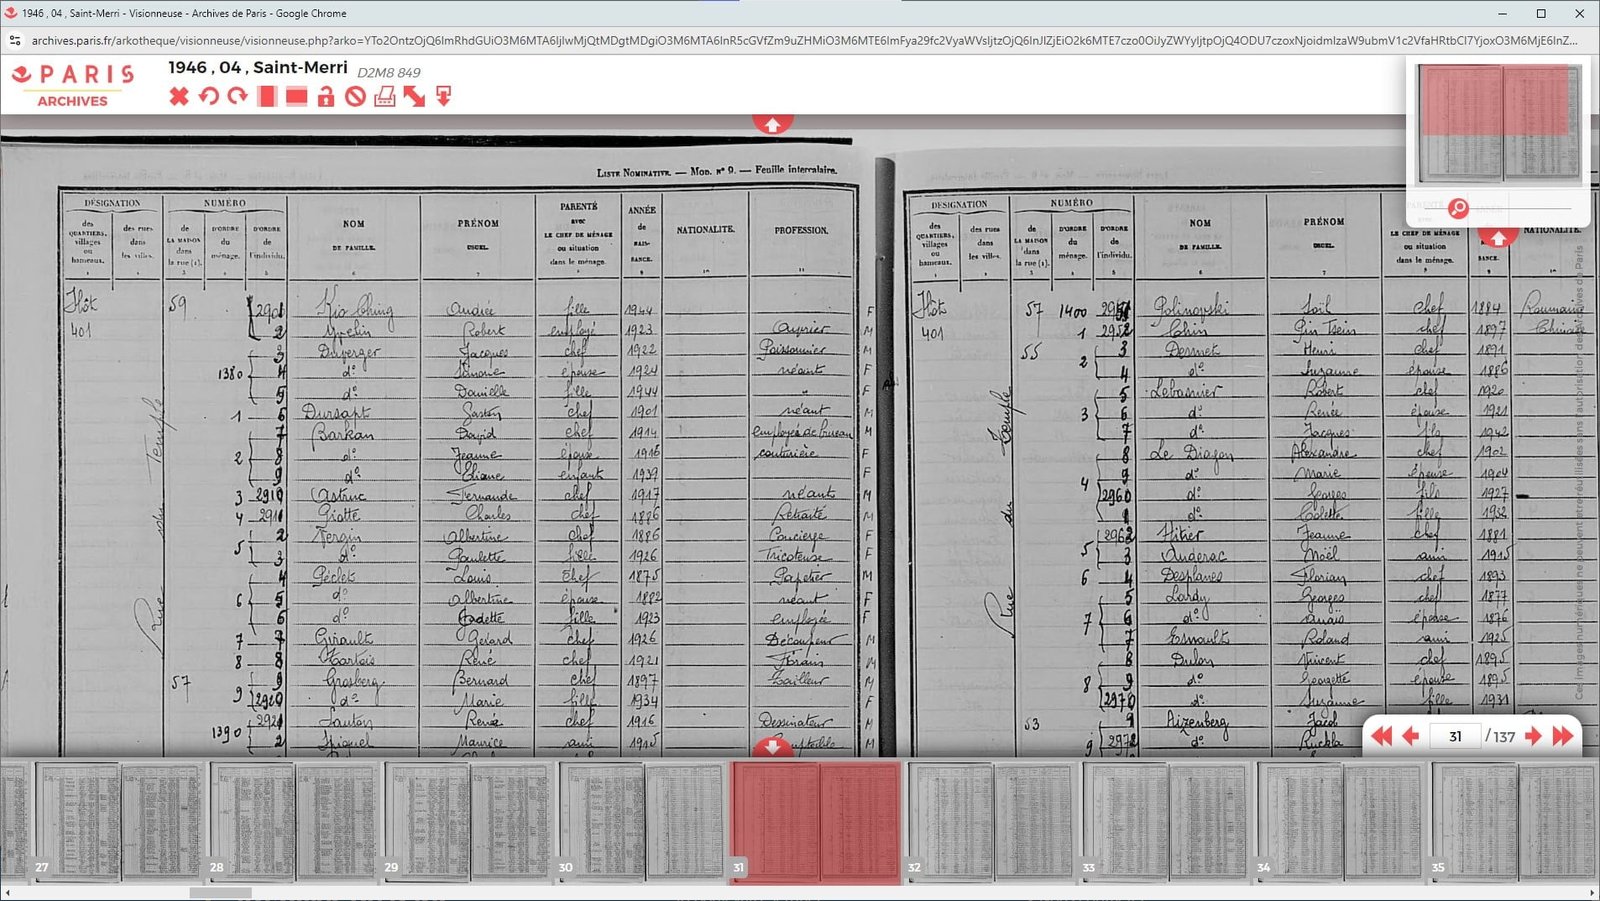 1946 , 04 , Saint-Merri - Visionneuse - Archives de Paris - Google Chrome
PARIS
ARCHIVES
1946 , 04 , Saint-Merri D2M8 849
LISTE NOMINATIVE. — MOD. N° 9. — Feuille intercalaire.
DÉSIGNATION
des QUARTIERS, villages ou hameaux.
des rues dans les villes.
NUMÉRO
de LA MAISON dans la rue (1).
D'ORDRE du ménage.
D'ORDRE de l'individu.
NOM DE FAMILLE.
PRÉNOM USUEL.
PARENTÉ avec LE CHEF DE MÉNAGE ou situation dans le ménage.
ANNÉE de NAISSANCE.
NATIONALITÉ.
PROFESSION.
Ilôt 59 2901 Kio Ching Andrée fille 1944 F
401 2 Robert employé 1923 Ouvrier M
3 Duverger Jacques chef 1922 Poissonnier M
1380 4 d° Simone épouse 1924 néant F
5 d° Danielle fille 1944 F
1 6 Dursapt Gaston chef 1901 néant M
7 Barkan David chef 1914 employé de bureau M
2 8 d° Jeanne épouse 1916 couturière F
9 d° Eliane enfant 1939 F
3 2910 Astruc Fernande chef 1917 néant M
4 2911 Giotte Charles chef 1886 Retraité M
2 Vergin Albertine chef 1886 Concierge F
5 3 d° Paulette fille 1926 Tricoteuse F
4 Péclet Louis chef 1875 Papetier M
6 5 d° Albertine épouse 1882 néant F
6 d° Odette fille 1923 employée F
7 7 Girault Gérard chef 1926 Découpeur M
8 8 Hartois René chef 1921 Forain M
57 9 Grosberg Bernard chef 1897 Tailleur M
9 2920 d° Marie fille 1934 F
2921 Sauton René chef 1916 Dessinateur M
1390 2 Maurice ami 1915 Comptable M
Rue du Temple
DÉSIGNATION
des QUARTIERS, villages ou hameaux.
des rues dans les villes.
NUMÉRO
de LA MAISON dans la rue (1).
D'ORDRE du ménage.
D'ORDRE de l'individu.
NOM DE FAMILLE.
PRÉNOM USUEL.
LE CHEF DE MÉNAGE ou situation dans le ménage.
NATIONALITÉ.
Ilôt 57 1400 2951 Polinovski chef 1884
401 1 2952 chef 1897
55 3 Dermet Henri chef 1891
2 4 d° Suzanne épouse 1886
5 Lebasnier Robert chef 1920
3 6 d° Renée épouse 1921
7 d° Jacques fils 1942
8 Le Diagon Alexandre chef 1902
9 d° Marie épouse 1904
4 2960 d° Georges fils 1927
1 d° Colette fille 1932
2962 Hitier Jeanne chef 1881
5 3 Augerac Noël ami 1915
6 4 Desplanes Florian chef 1893
5 Lardy Georges chef 1877
7 6 d° Anaïs épouse 1876
7 Esnault Roland ami 1925
8 Dulon Vincent chef 1895
8 9 d° Georgette épouse 1895
2970 d° Suzanne fille 1931
53 1 Aizenberg Jacob
9 2972 d° Ruckla
Rue du Temple
Ces images numériques ne peuvent être réutilisées sans l'autorisation des archives de Paris
31 /137
27 28 29 30 31 32 33 34 35